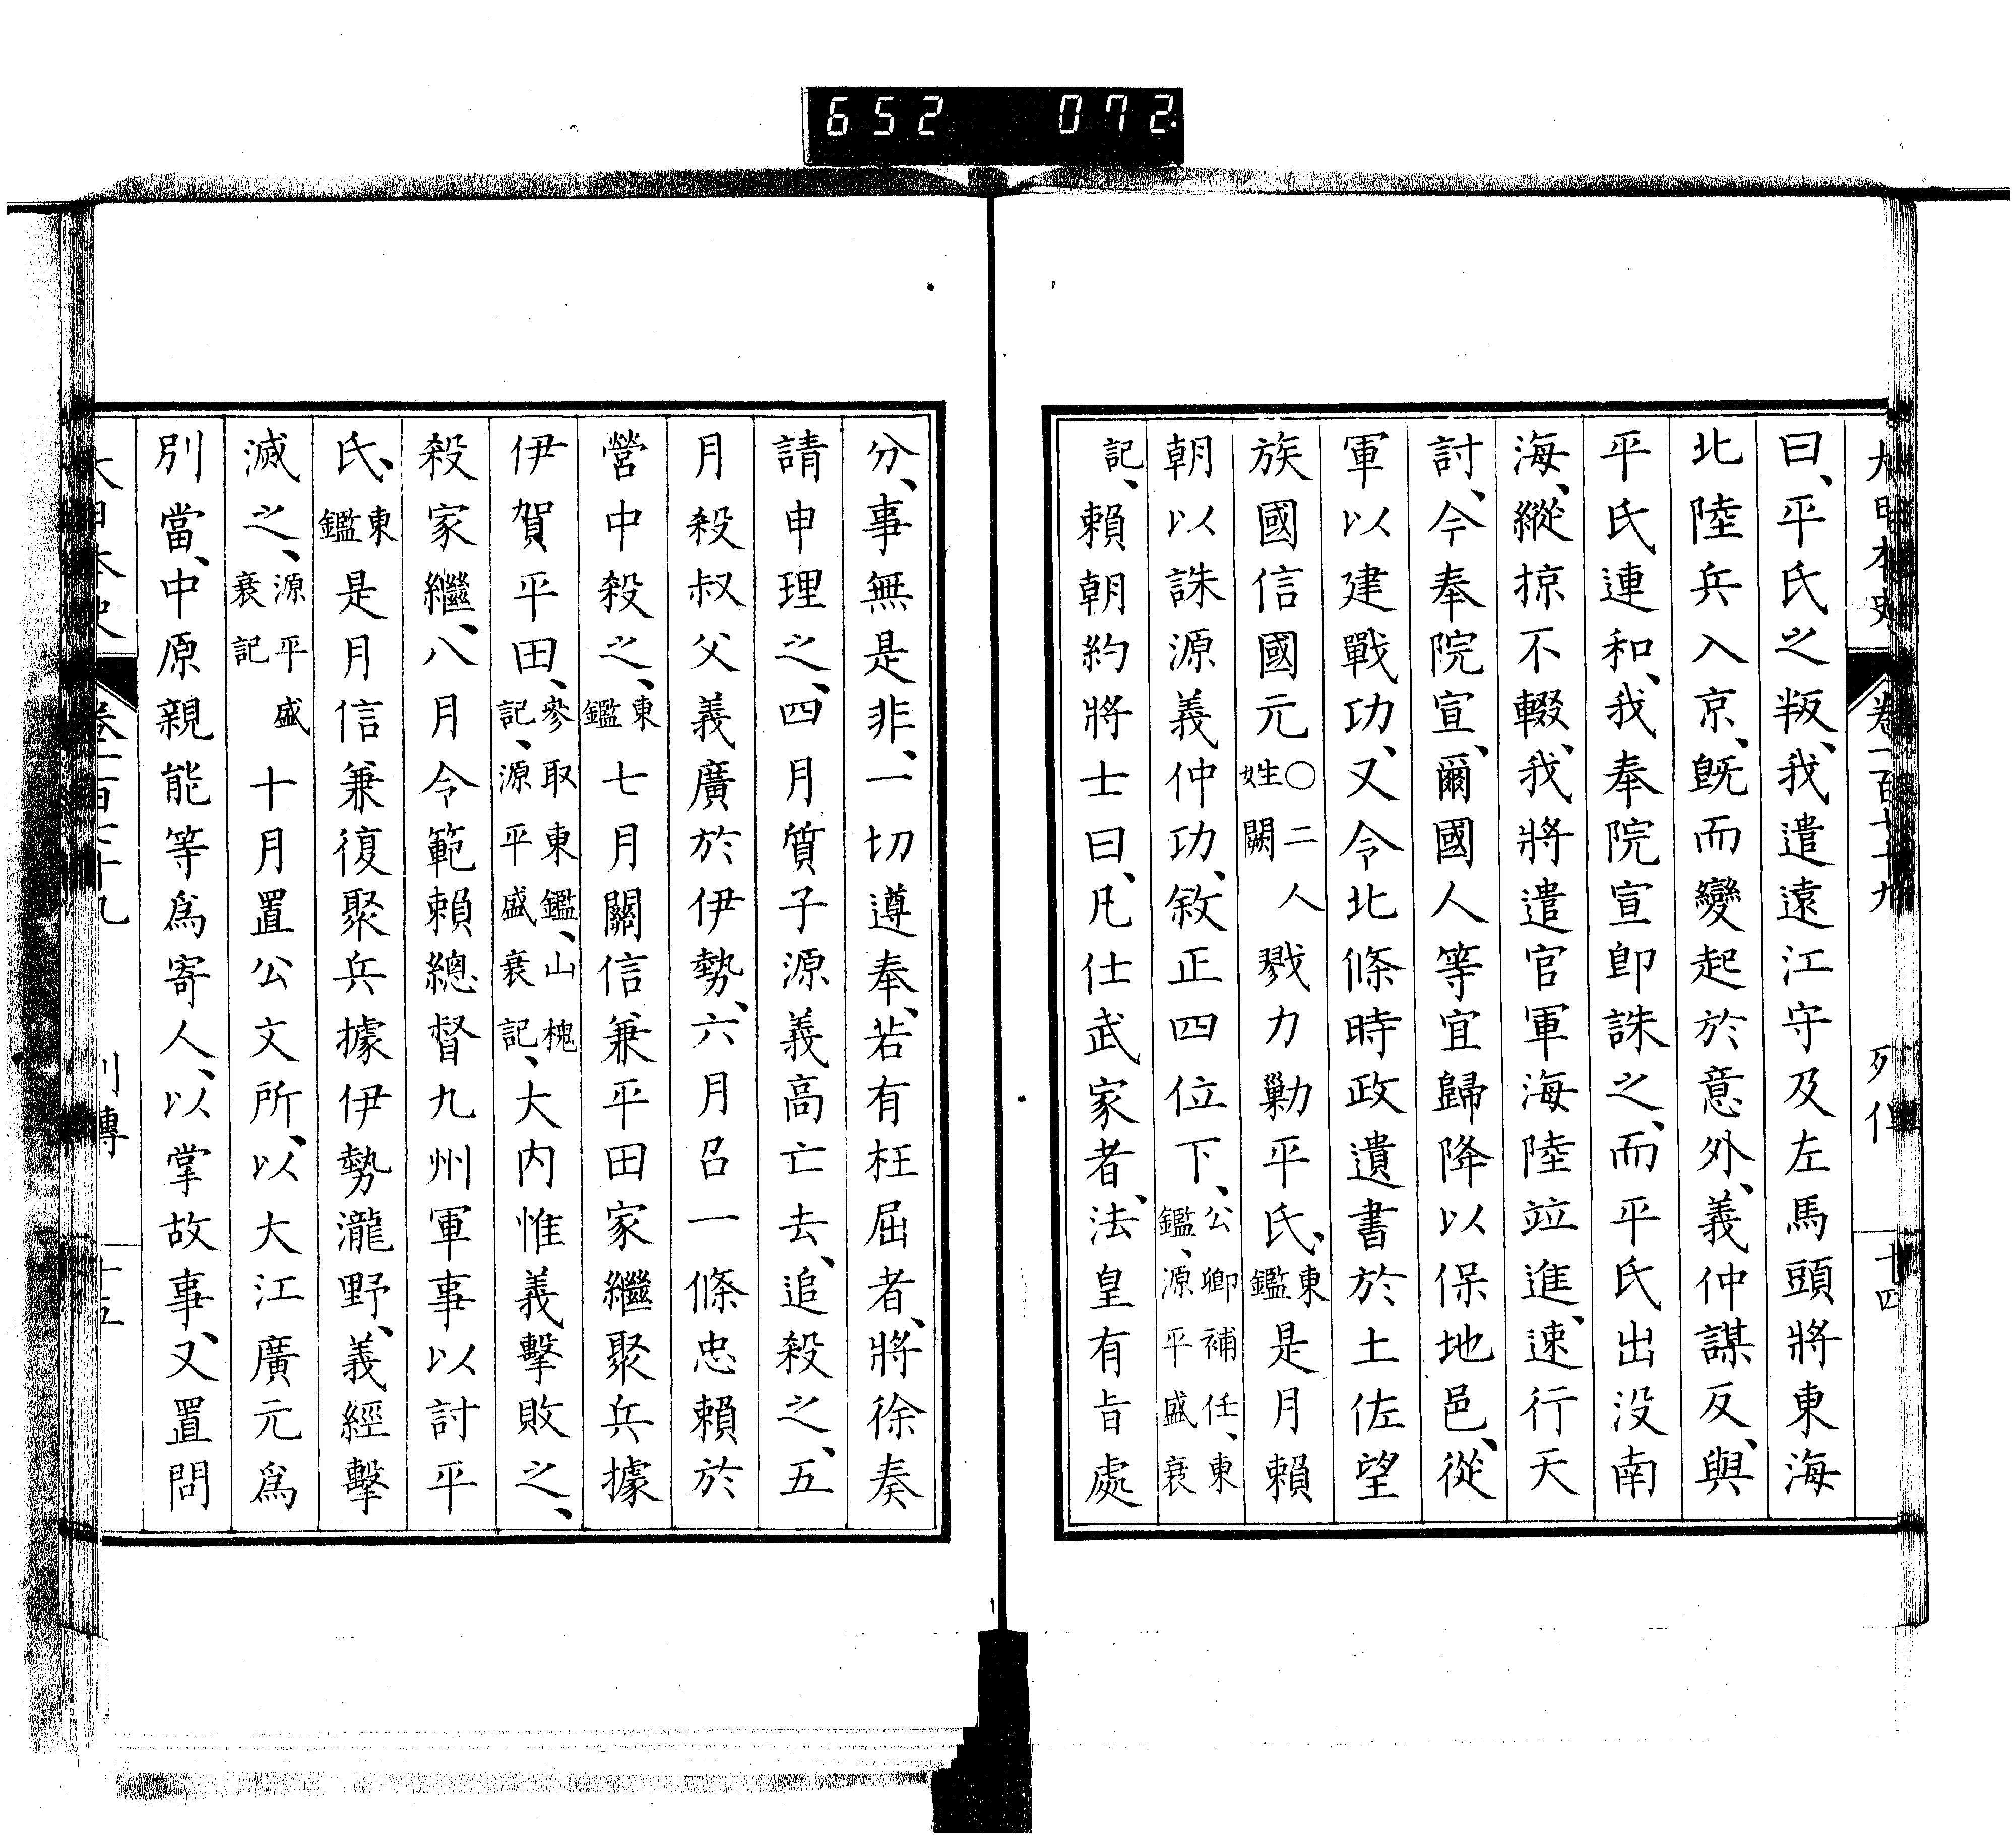 652 072
大日本史 卷一百七十九 列傳 十四
曰、平氏之叛、我遣遠江守及左馬頭將東海
北陸兵入京、既而變起於意外、義仲謀反、與
平氏連和、我奉院宣卽誅之、而平氏出没南
海、縱掠不輟、我將遣官軍海陸竝進、速行天
討、今奉院宣、爾國人等宜歸降以保地邑、從
軍以建戰功、又令北條時政遺書於土佐望
族國信國元○二人姓闕戮力勦平氏、東鑑是月賴
朝以誅源義仲功、敘正四位下、公卿補任、東鑑、源平盛衰
記、賴朝約將士曰、凡仕武家者、法皇有旨處
分、事無是非、一切遵奉、若有枉屈者、將徐奏
請申理之、四月質子源義高亡去、追殺之、五
月殺叔父義廣於伊勢、六月召一條忠賴於
營中殺之、東鑑七月關信兼平田家繼聚兵據
伊賀平田、參取東鑑、山槐記、源平盛衰記、大内惟義擊敗之、
殺家繼、八月令範賴總督九州軍事以討平
氏、東鑑是月信兼復聚兵據伊勢瀧野、義經擊
滅之、源平盛衰記十月置公文所、以大江廣元爲
別當、中原親能等爲寄人、以掌故事、又置問
大日本史 卷一百七十九 列傳 十五